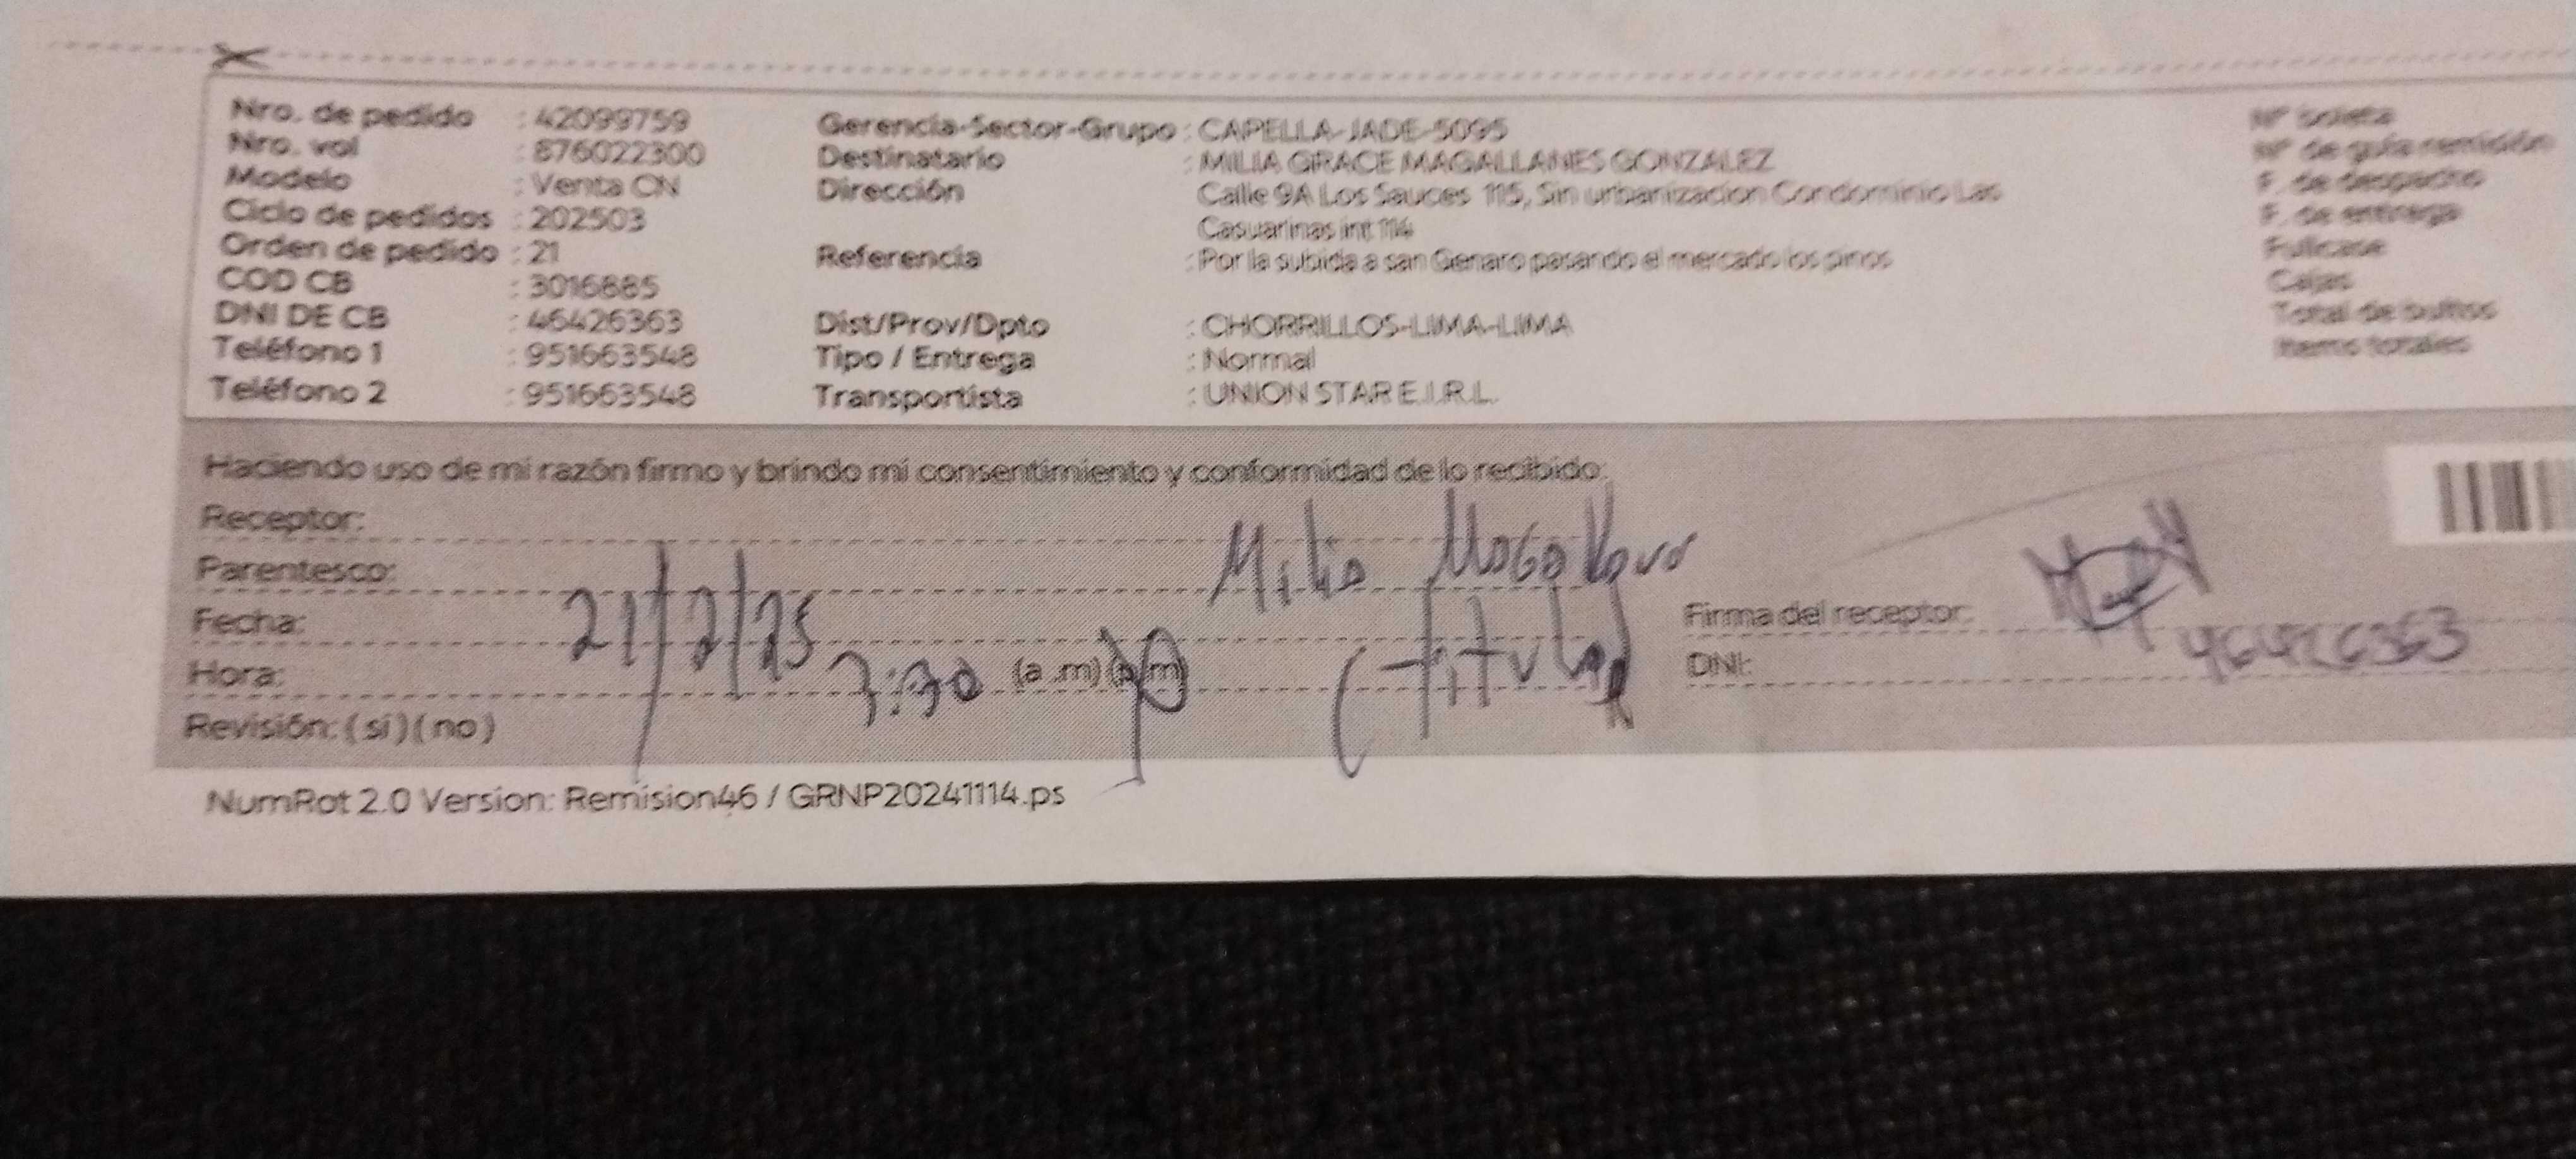 Nro. de pedido : 42099759 Gerencia-Sector-Grupo : CAPELLA-JADE-5095 N° boleta
Nro. vol : 876022300 Destinatario : MILIA GRACE MAGALLANES GONZALEZ N° de guía remisión
Modelo : Venta CN Dirección : Calle 9A Los Sauces 115, Sin urbanizacion Condominio Las F. de despacho
Ciclo de pedidos : 202503 Casuarinas int 114 F. de entrega
Orden de pedido : 21 Referencia : Por la subida a san Genaro pasando el mercado los pinos Fullcase
COD CB : 3016885 Cajas
DNI DE CB : 46426363 Dist/Prov/Dpto : CHORRILLOS-LIMA-LIMA Total de bultos
Teléfono 1 : 951663548 Tipo / Entrega : Normal Items totales
Teléfono 2 : 951663548 Transportista : UNION STAR E.I.R.L.
Haciendo uso de mi razón firmo y brindo mi consentimiento y conformidad de lo recibido:
Receptor:
Parentesco: Milia
Fecha: 21/2/25 (titular Firma del receptor:
Hora: (a .m) (p.m) DNI: 46426363
Revisión: ( si ) ( no )
NumRot 2.0 Version: Remision46 / GRNP20241114.ps